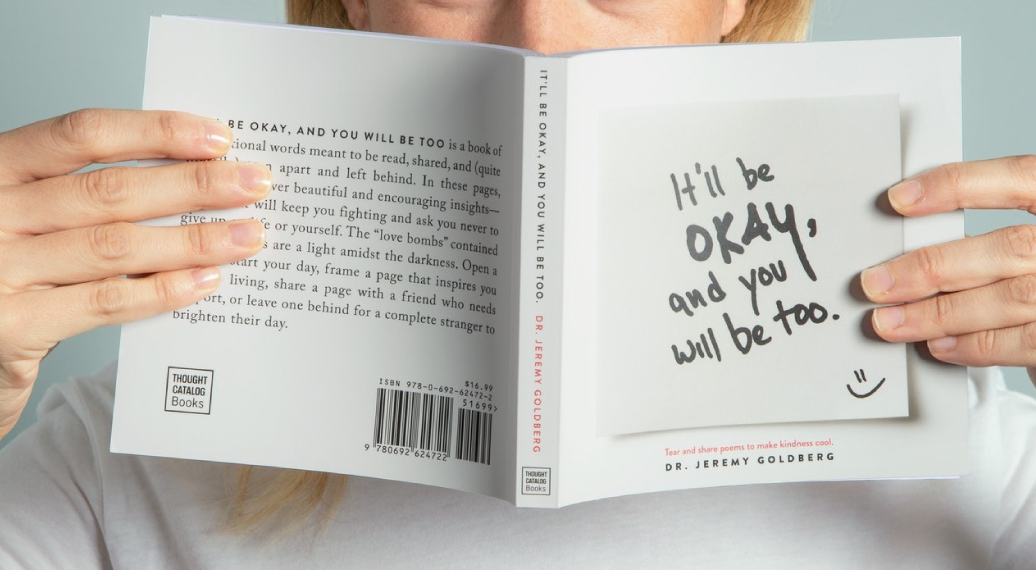 BE OKAY, AND YOU WILL BE TOO is a book of
words meant to be read, shared, and (quite
apart and left behind. In these pages,
beautiful and encouraging insights—
will keep you fighting and ask you never to
give up or yourself. The “love bombs” contained
are a light amidst the darkness. Open a
start your day, frame a page that inspires you
living, share a page with a friend who needs
or leave one behind for a complete stranger to
brighten their day.
THOUGHT
CATALOG
Books
$16.99
ISBN 978-0-692-62472-2
51699>
9 780692 624722
IT'LL BE OKAY, AND YOU WILL BE TOO. DR. JEREMY GOLDBERG
THOUGHT
CATALOG
Books
It'll be
OKAY,
and you
will be too.
Tear and share poems to make kindness cool.
DR. JEREMY GOLDBERG